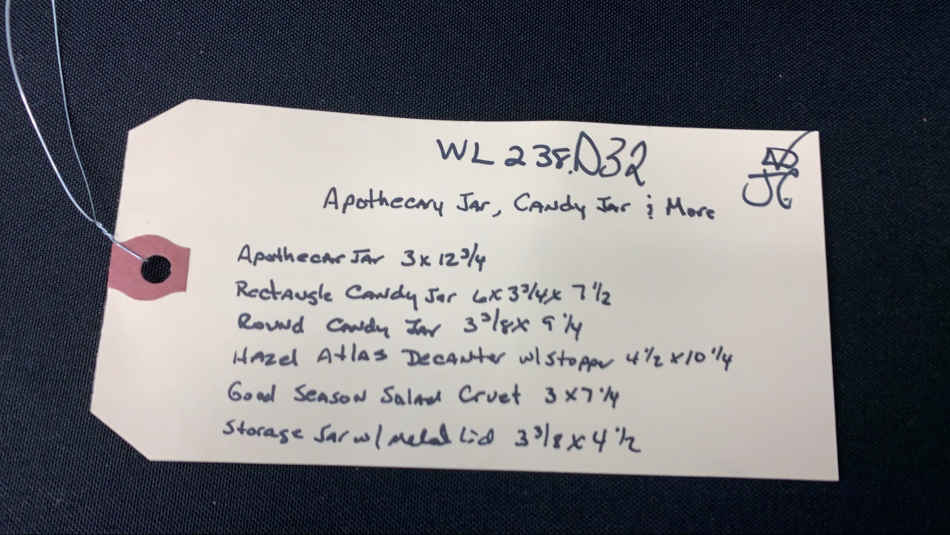 WL 238.D32
JG
Apothecary Jar, Candy Jar & More
Apothecar Jar 3 x 12 3/4
Rectangle Candy Jar 6 x 3 3/4 x 7 1/2
Round Candy Jar 3 3/8 x 9 1/4
Hazel Atlas Decanter w/ Stopper 4 1/2 x 10 1/4
Good Season Salad Cruet 3 x 7 1/4
Storage Jar w/ Metal Lid 3 3/8 x 4 1/2